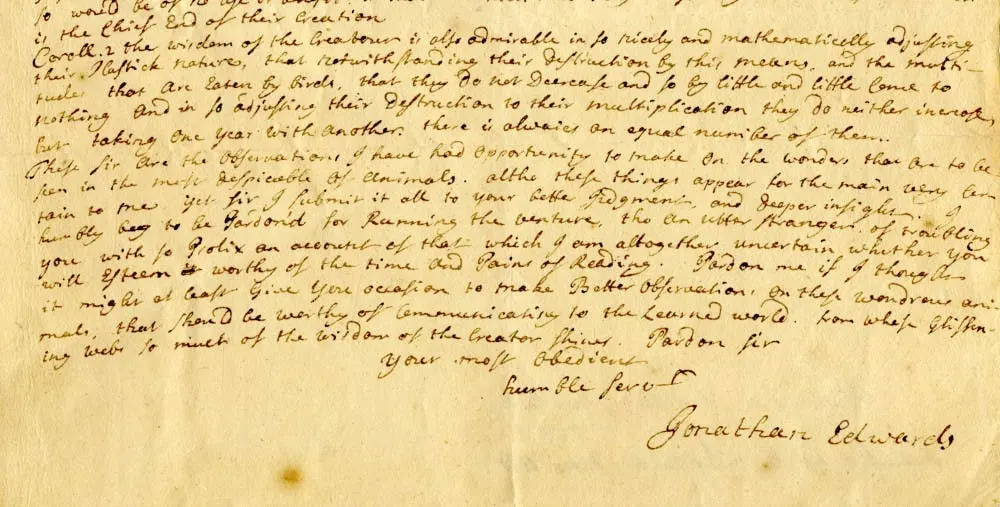 so would be of no use or
is the Chief End of their Creation
Coroll. 2 the wisdom of the Creatour is also admirable in so nicely and mathematically adjusting
their Plastick nature, that notwithstanding their destruction by this means, and the multi-
tudes that are Eaten by birds, that they do not Decrease and so by little and little Come to
nothing And in so adjusting their destruction to their multiplication they do neither increase,
but taking one year with another. there is alwaies an equal number of them.
These Sir are the Observations I have had opportunity to make on the wonders that are to be
seen in the most despicable of animals. altho these things appear for the main very Cer
tain to me yet Sir I submit it all to your better Judgment, and deeper insight. I
humbly beg to be Pardon'd for Running the venture, tho an utter stranger, of troubling
you with so Prolix an account of that which I am altogether uncertain whether you
will Esteem worthy of the time and Pains of Reading. Pardon me if I thought
it might at least Give you occasion to make Better Observations, on these wondrous ani-
mals, that should be worthy of Communicating to the Learned world. from whose Glisten-
ing webs so much of the wisdom of the Creator shines. Pardon Sir
your most Obedient
humble Servt
Jonathan Edwards